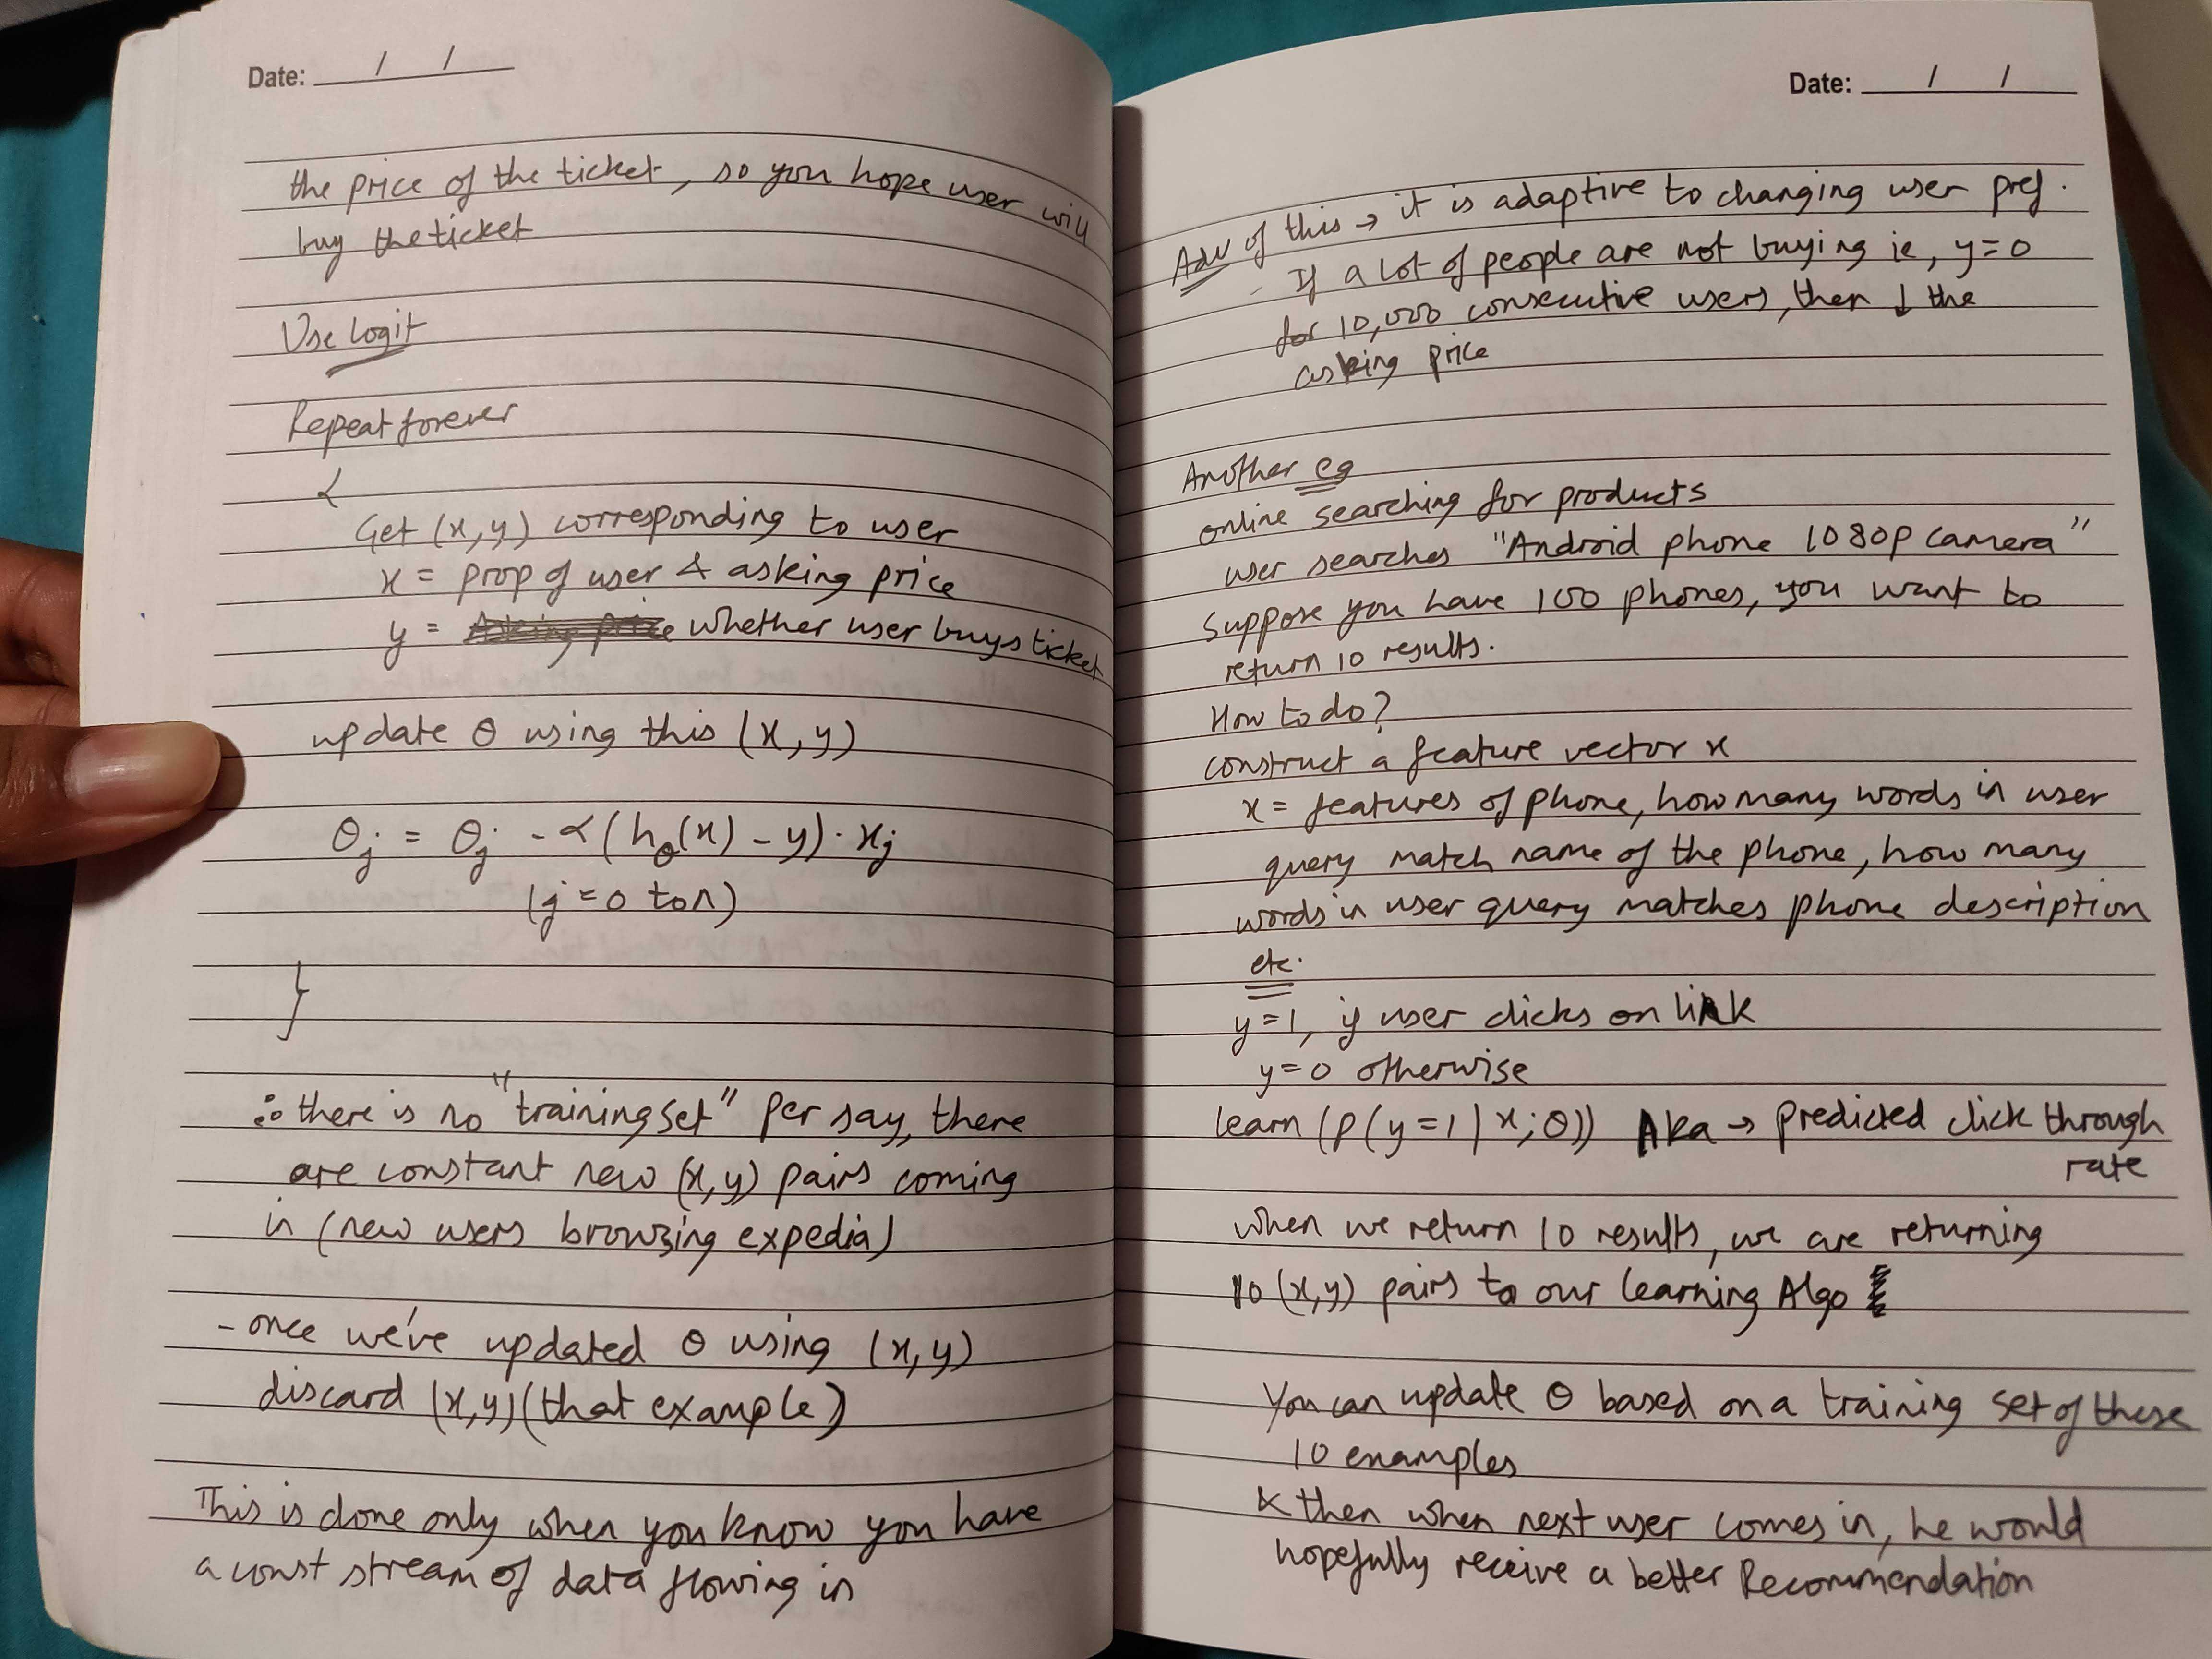 Date: / /
the price of the ticket, so you hope user will
buy the ticket
Use logit
Repeat forever
{
Get (x,y) corresponding to user
x = prop of user & asking price
y = Asking price whether user buys ticket
update θ using this (x,y)
θj = θj - α(hθ(x) - y)·xj
(j = 0 to n)
}
∴ there is no "training set" per say, there
are constant new (x,y) pairs coming
in (new users browsing expedia)
- once we've updated θ using (x,y)
discard (x,y) (that example)
This is done only when you know you have
a const stream of data flowing in
Date: / /
Adv of this → it is adaptive to changing user pref.
- If a lot of people are not buying ie, y=0
for 10,000 consecutive users, then ↓ the
asking price
Another eg
online searching for products
user searches "Android phone 1080p camera"
Suppose you have 100 phones, you want to
return 10 results.
How to do?
construct a feature vector x
x = features of phone, how many words in user
query match name of the phone, how many
words in user query matches phone description
etc.
y=1, if user clicks on link
y=0 otherwise
learn (p(y=1|x;θ)) Aka → predicted click through
rate
when we return 10 results, we are returning
10 (x,y) pairs to our learning Algo
You can update θ based on a training set of these
10 examples
& then when next user comes in, he would
hopefully receive a better Recommendation